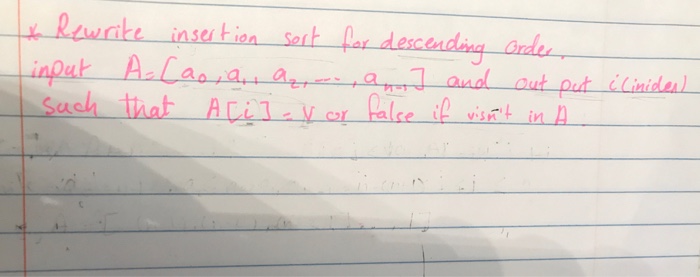 * Rewrite insertion sort for descending order.
input A=[a0, a1, a2, ---, an-1] and out put i(iniden)
such that A[i] = v or false if visn't in A.